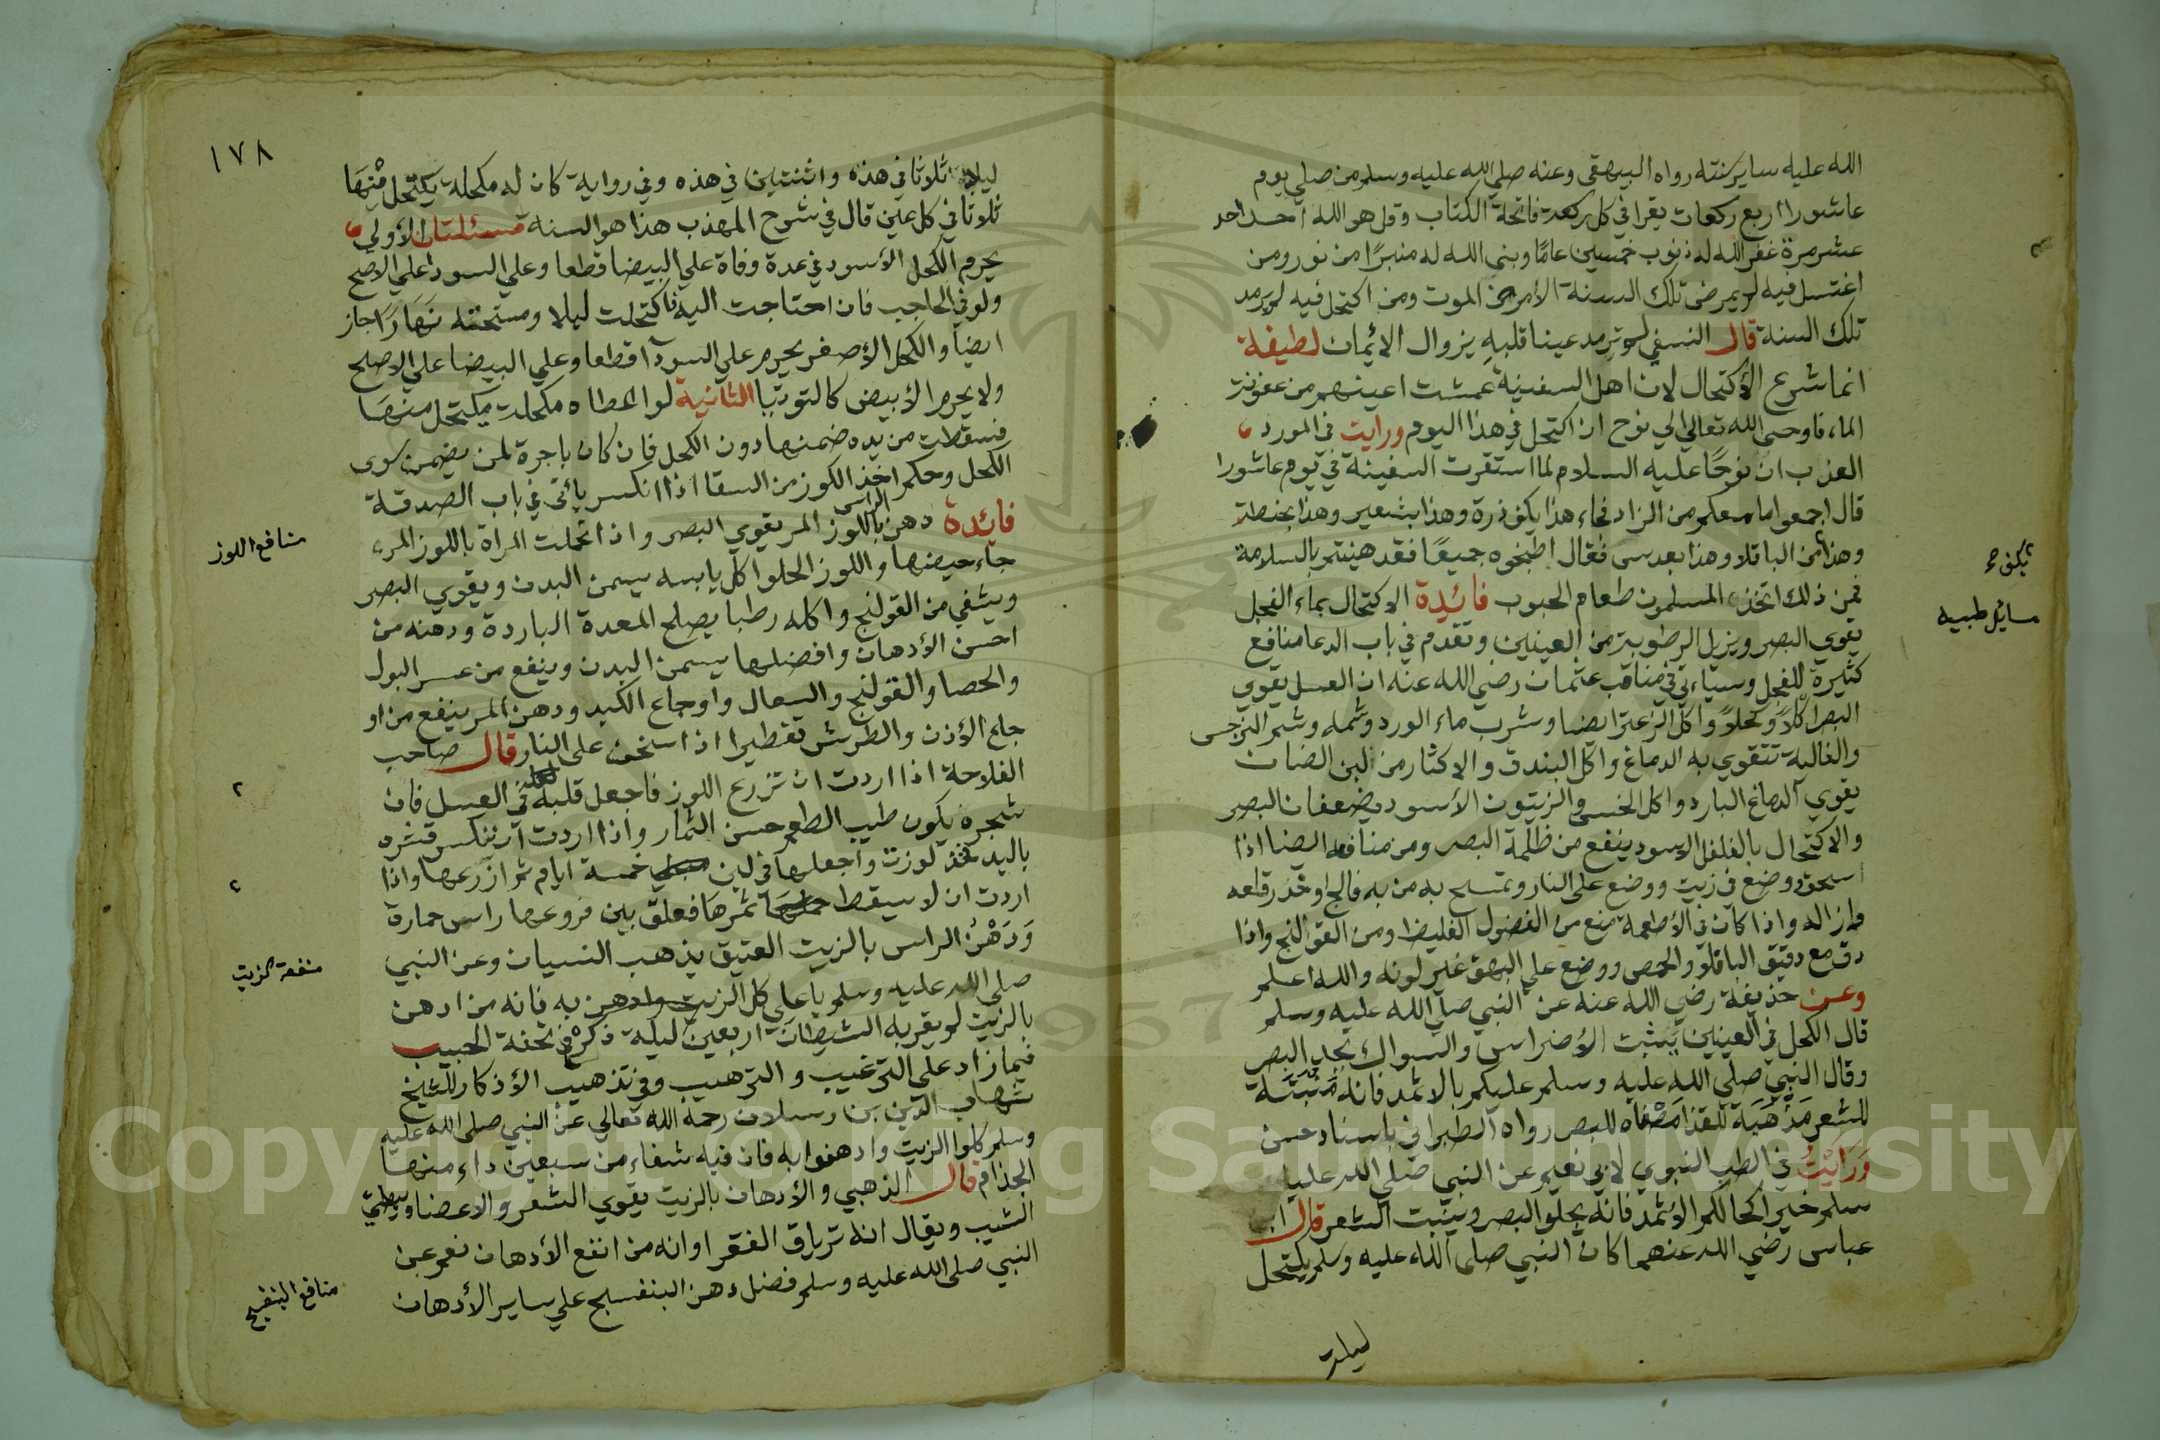 الله عليه ساير سنته رواه البيهقي وعنه صلي الله عليه وسلم من صلي يوم
عاشورا اربع ركعات يقرا في كل ركعة فاتحة الكتاب وقل هو الله احد احد
عشر مرة غفر الله له ذنوب خمسين عامًا وبني الله له منبرًا من نور ومن
اغتسل فيه لم يمرض تلك السنة الا مرض الموت ومن اكتحل فيه لم يرمد
تلك السنة قال النسفي لم ترمد عينا قلبه بزوال الائمان لطيفة
انما شرع الاكتحال لان اهل السفينة عمشت اعينهم من عفونت
الماء فاوحي الله تعالي الي نوح ان اكتحل في هذا اليوم ورايت في المورد
العذب ان نوحًا عليه السلام لما استقرت السفينة في يوم عاشورا
قال اجمعوا ما معكم من الزاد فجاء هذا بكف ذرة وهذا بشعير وهذا بحنطة
وهذا من الباقلا وهذا بعدسي فقال اطبخوه جميعًا فقد هنيتم بالسلامة
فمن ذلك اتخذ المسلمون طعام الحبوب فائدة الاكتحال بماء الفجل
يقوي البصر ويزيل الرطوبة من العينين وتقدم في باب الدعا منافع
كثيرة للفجل وسياتي في مناقب عثمان رضي الله عنه ان العسل يقوي
البصر اكلاً وكحلاً واكل الزعتر ايضا وشرب ماء الورد وشمه وشم النرجس
والغالية تتقوي به الدماغ واكل البندق والاكثار من لبن الضان
يقوي الدماغ البارد واكل الخس والزيتون الأسود يضعفان البصر
والاكتحال بالفلفل الاسود ينفع من ظلمة البصر ومن منافعه ايضا اذا
اسحق ووضع في زيت ووضع علي النار وتمسح به من به فالج او خذر قلعه
وازاله واذا كان في الأطعمة منع من الفضول الغليظا ومن القولنج واذا
دق مع دقيق الباقلا والحمص ووضع علي البهق غير لونه والله اعلم
وعن حذيفة رضي الله عنه عن النبي صلي الله عليه وسلم
قال الكحل في العينين يثبت الأضراس والسواك يحد البصر
وقال النبي صلي الله عليه وسلم عليكم بالاثمد فانه مَنْبَتَة
للشعر مَذْهَبَة للقذا مصفاه للبصر رواه الطبراني باسناد حسن
وَرَايْتُ في الطب النبوي لابي نعيم عن النبي صلي الله عليه
سلم خير اكحالكم الاثمد فانه يجلو البصر وينبت الشعر قال ابن
عباس رضي الله عنهما كان النبي صلي الله عليه وسلم يكتحل
ليلة
يكف ح
مسايل طبيه
١٧٨
ليلة ثلاثا في هذه واثنتين في هذه وفي رواية كان له مكحلة يكتحل مِنْهَا
ثلاثًا في كل عين قال في شرح المهذب هذا هو السنة مسئلتان الأولي
يحرم الكحل الأسود في عدة وفاة علي البيضا قطعا وعلي السودا علي الاصح
ولو في الحاجب فان احتاجت اليه فاكتحلت ليلا ومسحته نَهَارًا جاز
ايضا والكحل الأصفر يحرم علي السودآ قطعا وعلي البيضا علي الاصلح
ولا يحرم الأبيض كالتوتيا الثانية لو اعطاه مكحلة يكتحل منها
فسقطت من يده ضمنها دون الكحل فان كان باجرة لمن يضمن سوي
الكحل وحكم اخذ الكوز من السقا اذا انكسر ياتي في باب الصدقة
فائدة دهن الراس باللوز المر يقوي البصر واذا اتحملت المراة باللوز المر
جاء حيضها واللوز الحلوا كل يابسه يسمن البدن ويقوي البصر
ويشفي من القولنج واكله رطبا يصلح المعدة الباردة ودهنه من
احسن الأدهان وافضلها يسمن البدن وينفع من عسر البول
والحصا والقولنج والسعال واوجاع الكبد ودهن المر ينفع من او
جاع الأذن والطرش تقطيرا اذا سخن علي النار قال صاحب
الفلاحة اذا اردت ان تزرع اللوز فاجعل قلبه في العسل فان
شجره يكون طيب الطعم حسن الثمار واذا اردت ان تنكسر قشره
باليد فخذ لوزة واجعلها في لبن خمسة ايام ثم ازرعها واذا
اردت ان لا يسقط ثمرها فعلق بين فروعها راس حمارة
وَدَهْنُ الراس بالزيت العتيق يذهب النسيان وعن النبي
صلي الله عليه وسلم يا علي كل الزيت وادهن به فانه من ادهن
بالزيت لم يقربه الشيطان اربعين ليلة ذكره في تحفة الحبيب
فيما زاد علي الترغيب والترهيب وفي تذهيب الأذكار للشيخ
شهاب الدين بن رسلان رحمه الله تعالي عن النبي صلي الله عليه
وسلم كلوا الزيت وادهنوا به فان فيه شفاء من سبعين داء منها
الجذام قال الذهبي والأدهان بالزيت يقوي الشعر والاعضا ويبطي
الشيب ويقال انه ترياق الفقر اوانه من انفع الأدهان نعم عن
النبي صلي الله عليه وسلم فضل دهن البنفسج علي ساير الأدهان
منافع اللوز
٢
٢
منفعة الزيت
منافع البنفسج
Copyright © King Saud University
1957